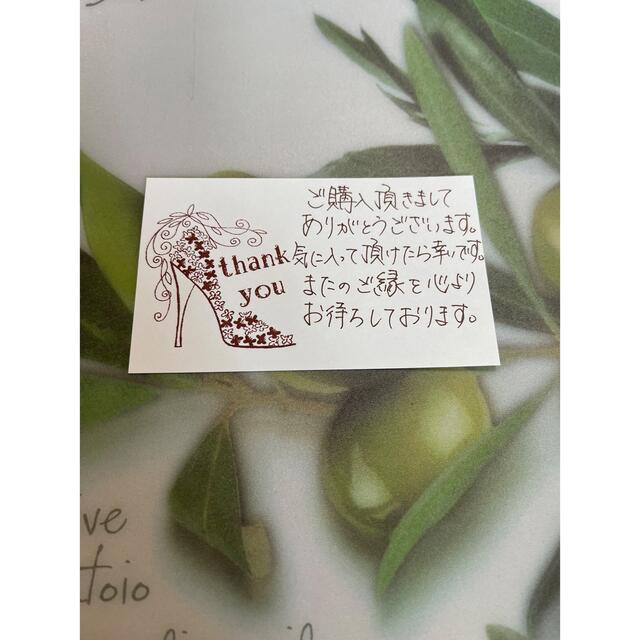 thank
you
ご購入頂きまして
ありがとうございます。
気に入って頂けたら幸いです。
またのご縁を心より
お待ちしております。
ive
toio